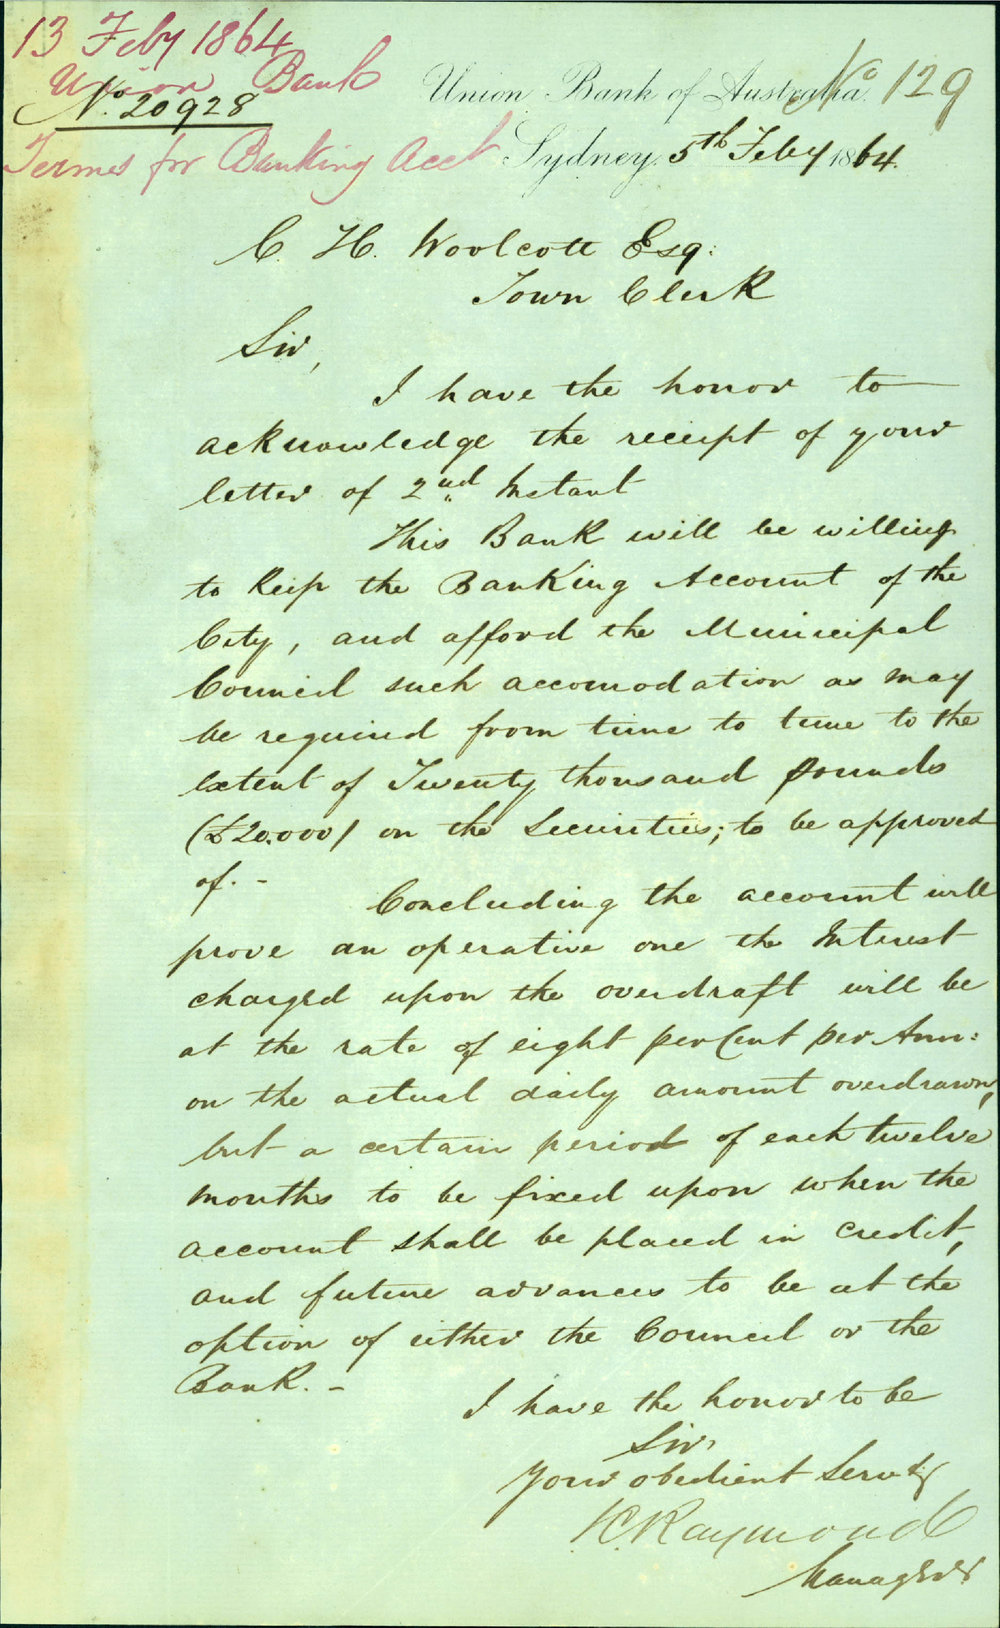 13 Feby 1864
Union Bank
No. 20928
Terms for Banking Acct
No 129
Union Bank of Australia.
Sydney, 5th Feby 1864.
C. H. Woolcott Esq:
Town Clerk
Sir,
I have the honor to
acknowledge the receipt of your
letter of 2nd Instant
This Bank will be willing
to keep the Banking Account of the
City, and afford the Municipal
Council such accomodation as may
be required from time to time to the
extent of Twenty thousand pounds
(£20.000) on the Securities; to be approved
of. -
Concluding the account will
prove an operative one the Interest
charged upon the overdraft will be
at the rate of eight per Cent per Ann:
on the actual daily amount overdrawn,
but a certain period of each twelve
months to be fixed upon when the
account shall be placed in credit,
and future advances to be at the
option of either the Council or the
Bank. -
I have the honor to be
Sir,
Your obedient Servt
Raymond
Manager